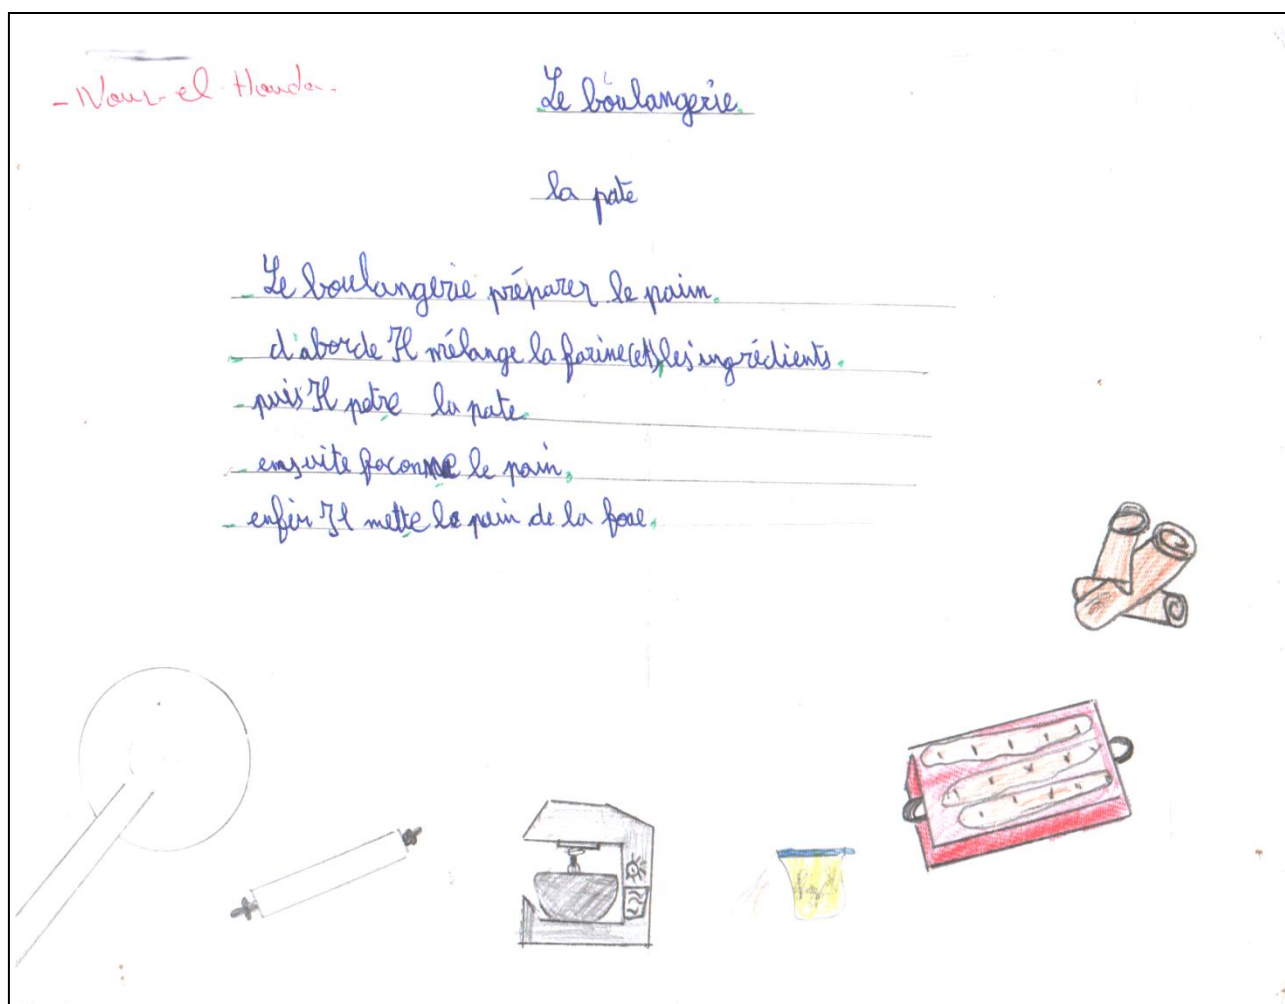 - Nour-el-Houda.
Le boulangerie.
la pate
Le boulangerie préparer le paim.
d'aborde Il mélange la farine(et) les ingrédients.
puis Il petre la pate
ensuite faconne le pain,
enfin Il mette le pain de la foue.